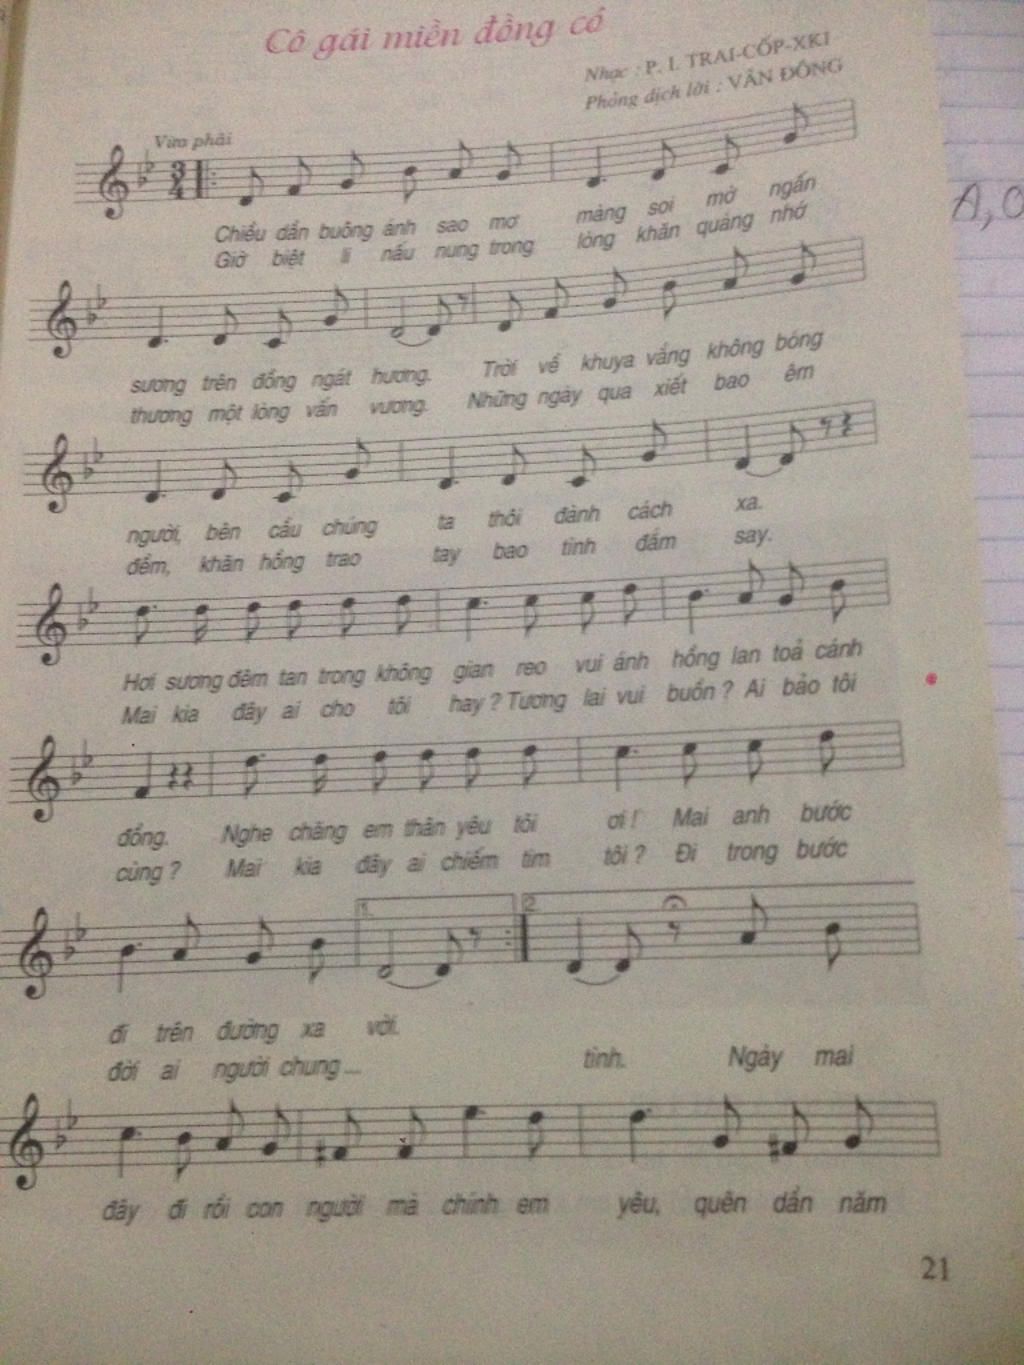 Cô gái miền đồng cỏ
Nhạc : P. I. TRAI-CỐP-XKI
Phỏng dịch lời : VÂN ĐÔNG
Vừa phải
3
4
Chiều dần buông ánh sao mơ màng soi mờ ngấn
Giờ biệt li nấu nung trong lòng khăn quàng nhớ
sương trên đồng ngát hương. Trời về khuya vắng không bóng
thương một lòng vấn vương. Những ngày qua xiết bao êm
người, bên cầu chúng ta thôi đành cách xa.
đềm, khăn hồng trao tay bao tình đắm say.
Hơi sương đêm tan trong không gian reo vui ánh hồng lan toả cánh
Mai kia đây ai cho tôi hay ? Tương lai vui buồn ? Ai bảo tôi
đồng. Nghe chăng em thân yêu tôi ơi ! Mai anh bước
cùng ? Mai kia đây ai chiếm tim tôi ? Đi trong bước
1. 2.
đi trên đường xa vời.
đời ai người chung... tình. Ngày mai
đây đi rồi con người mà chính em yêu, quên dần năm
21
A,